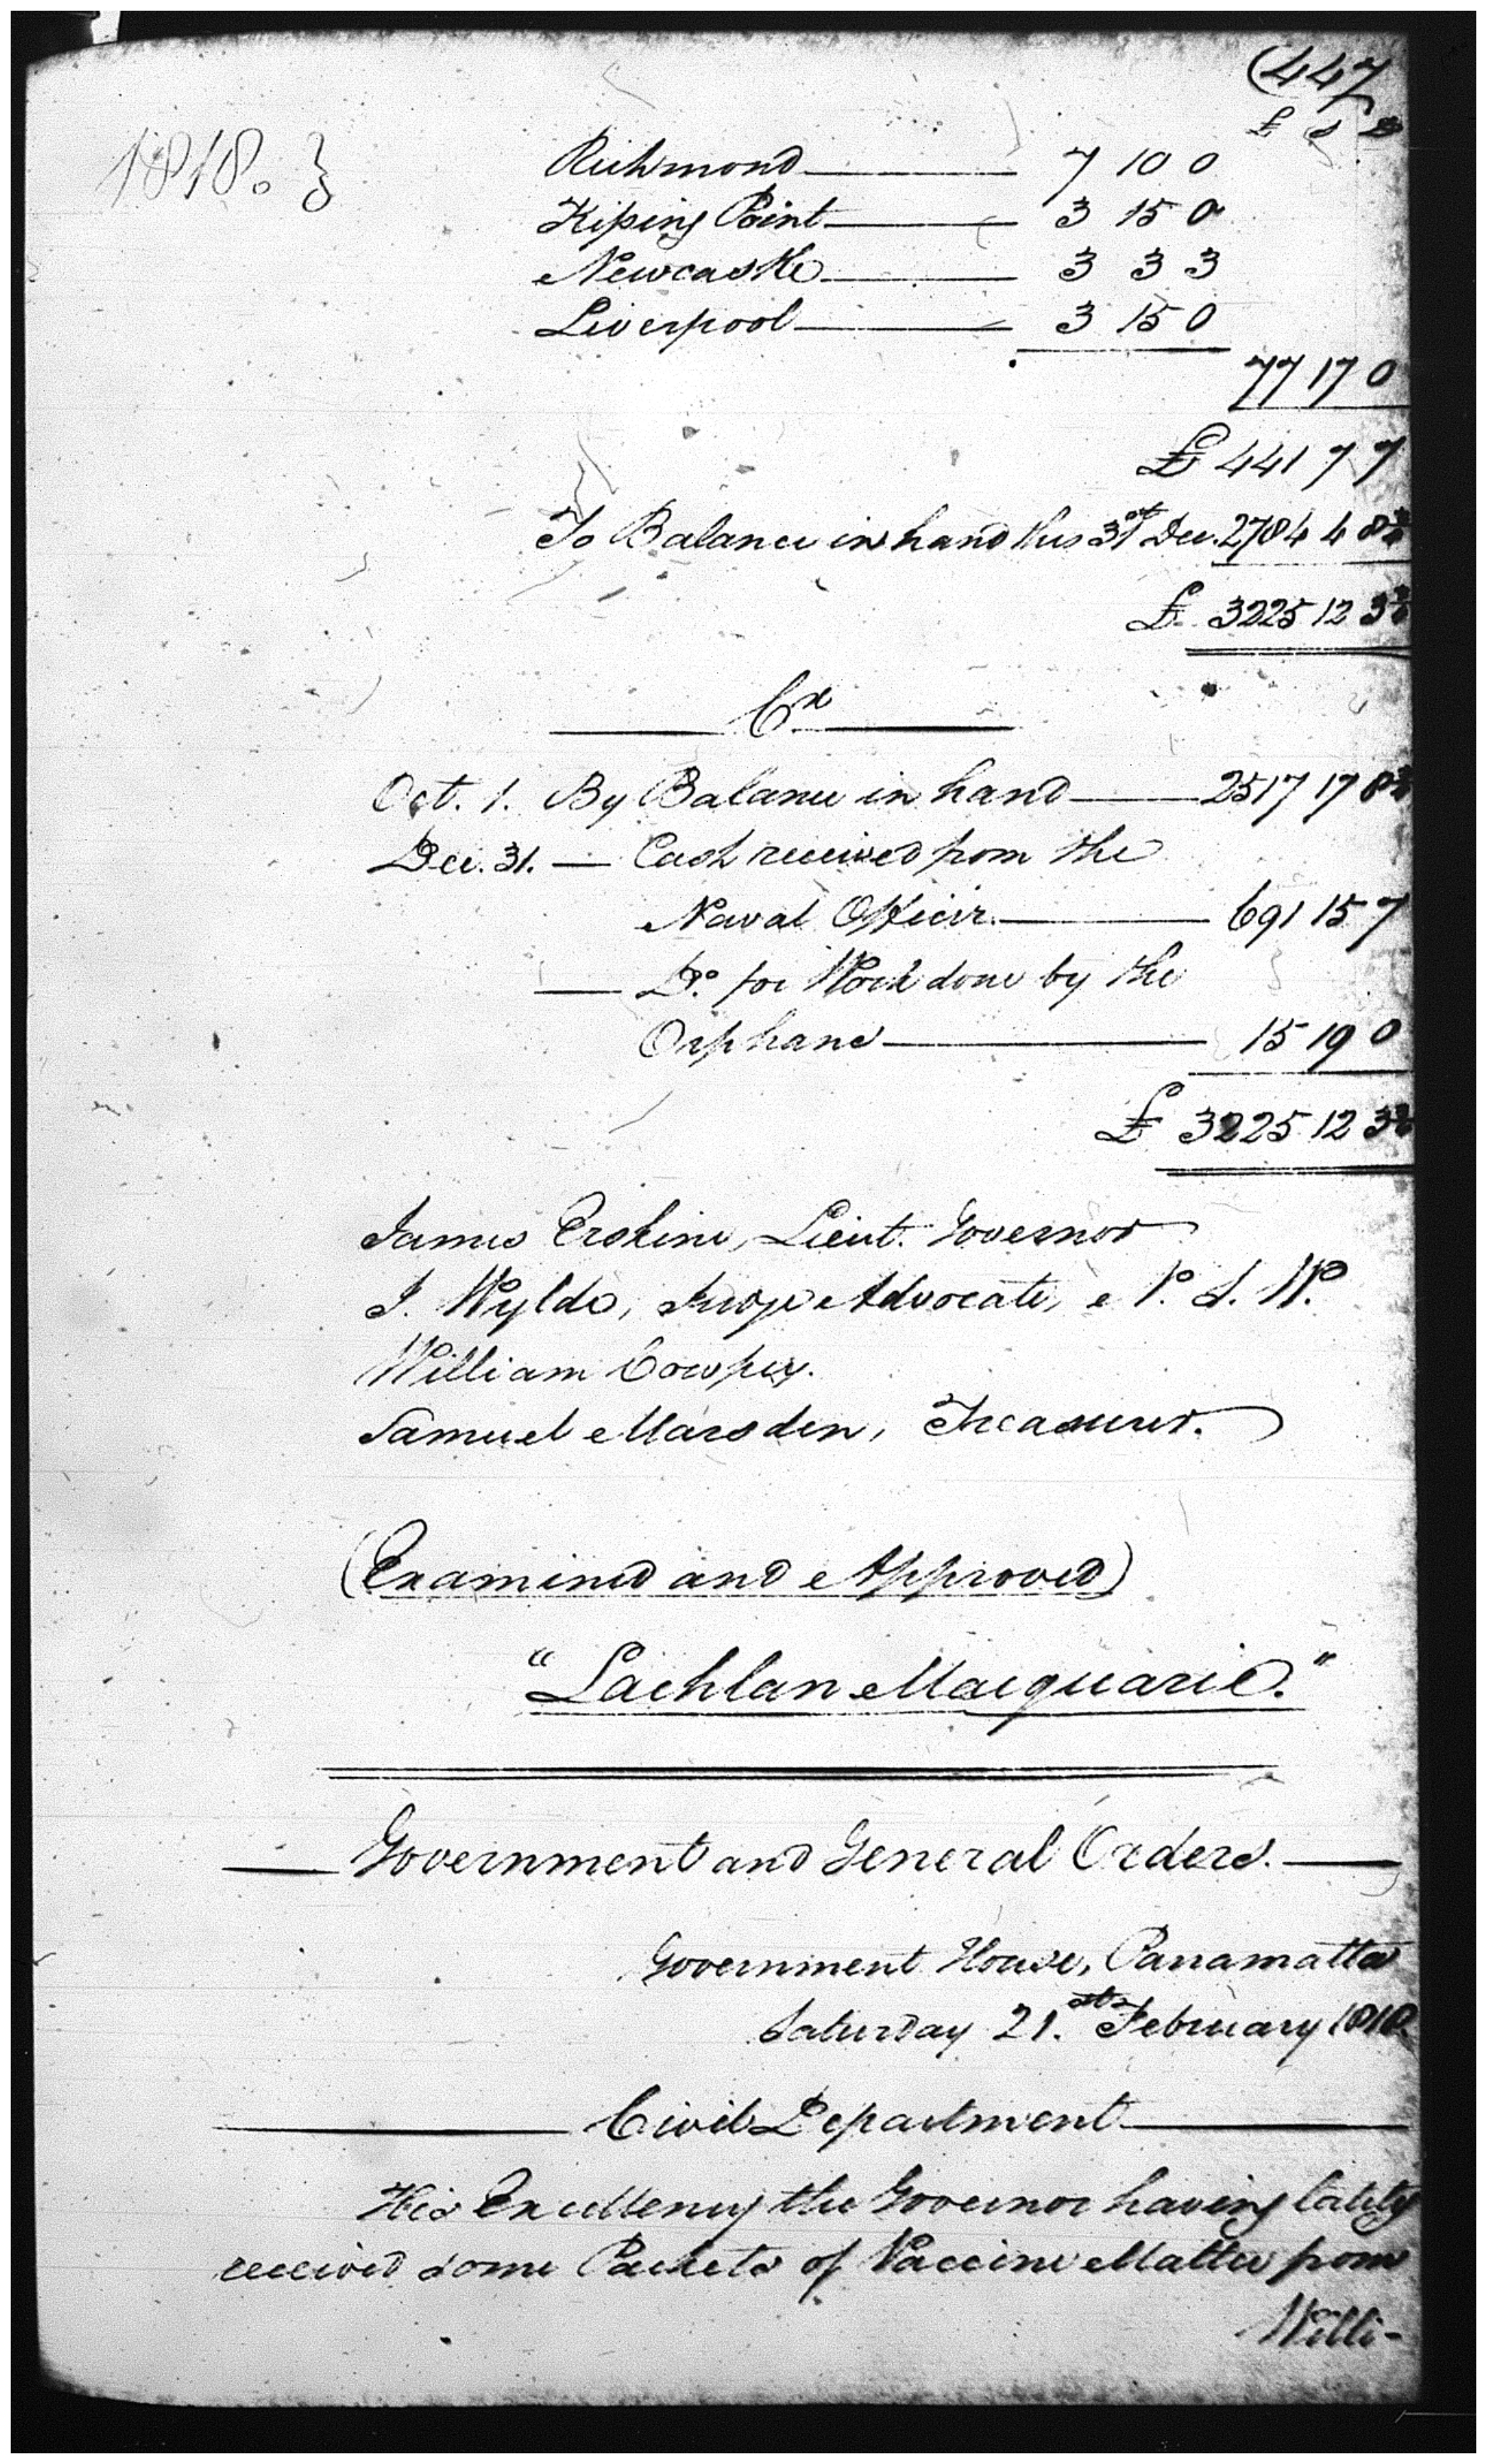 (447
£ s d
1818. }
Richmond 7 10 0
Kissing Point 3 15 0
Newcastle 3 3 3
Liverpool 3 15 0
77 17 0
£ 441 7 7
To Balance in hand this 31st Dec. 2784 4 8¾
£ 3225 12 3¾
Cr.
Oct. 1. By Balance in hand 2517 17 8¾
Dec. 31. — Cash received from the
Naval Officer. 691 15 7
— Do. for Work done by the
Orphans 15 19 0
£ 3225 12 3¾
James Erskine, Lieut. Governor
J. Wylde, Judge Advocate, &
William Cowper.
Samuel Marsden, Treasurer.
(Examined and Approved)
"Lachlan Macquarie."
Government and General Orders.
Government House, Parramatta
Saturday 21.st February 1818.
Civil Department
His Excellency the Governor having lately
received some Packets of Vaccine Matter from
Willi-